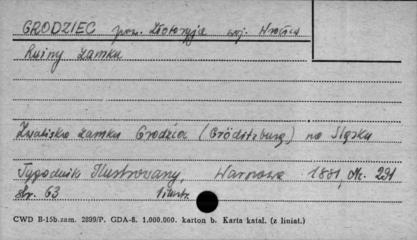 GRODZIEC pow. Złotoryja woj. Wrocław
Ruiny zamku
Zwaliska zamku Grodziec (Gröditzburg) na Śląsku
Tygodnik Ilustrowany, Warszawa 1881, Nr. 291
str. 63 ilustr.
CWD B-15b.zam. 2899/P. GDA-8. 1.000.000. karton b. Karta katal. (z liniat.)